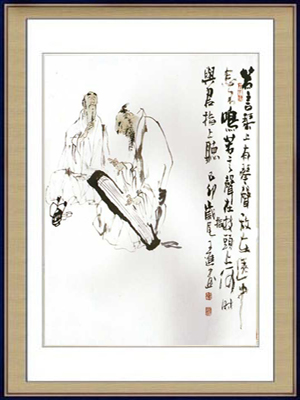 若言琴上有琴聲放在匣中
不鳴若言聲在指頭上何
與君指上聽 己卯歲尾